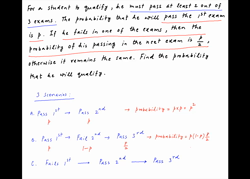 For a student to qualify, he must pass at least 2 out of
3 exams. The probability that he will pass the 1st exam
is p. If he fails in one of the exams, then the
probability of his passing in the next exam is p/2,
otherwise it remains the same. Find the probability
that he will qualify.
3 Scenarios:
a. Pass 1st → Pass 2nd → probability = p×p = p²
p p
B. Pass 1st → Fail 2nd → Pass 3rd → probability = p(1-p)p/2
p 1-p p/2
C. Fails 1st → Pass 2nd → Pass 3rd